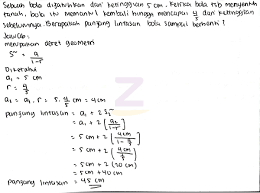 Sebuah bola dijatuhkan dari ketinggian 5 cm. Ketika bola tsb menyentuh
tanah, bola itu memantul kembali hingga mencapai 4/5 dari ketinggian
sebelumnya. Berapakah panjang lintasan bola sampai berhenti?
Jawab:
merupakan deret geometri
S∞ = a/(1-r)
Diketahui
a₁ = 5 cm
r = 4/5
a₂ = a₁ . r = 5 . 4/5 cm = 4 cm
panjang lintasan = a₁ + 2 S∞
= a₁ + 2 [a₂/(1-r)]
= 5 cm + 2 [4 cm/(1-4/5)]
= 5 cm + 2 [4 cm/(1/5)]
= 5 cm + 2 (20 cm)
= 5 cm + 40 cm
panjang lintasan = 45 cm